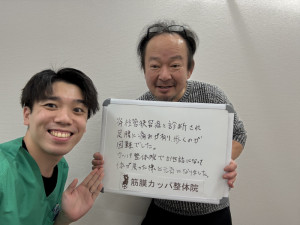 脊柱管狭窄症と診断され
足腰に痛みが有り歩くのが
困難でした。
カッパ整体院でお世話になり
になりました。
筋膜カッパ整体院